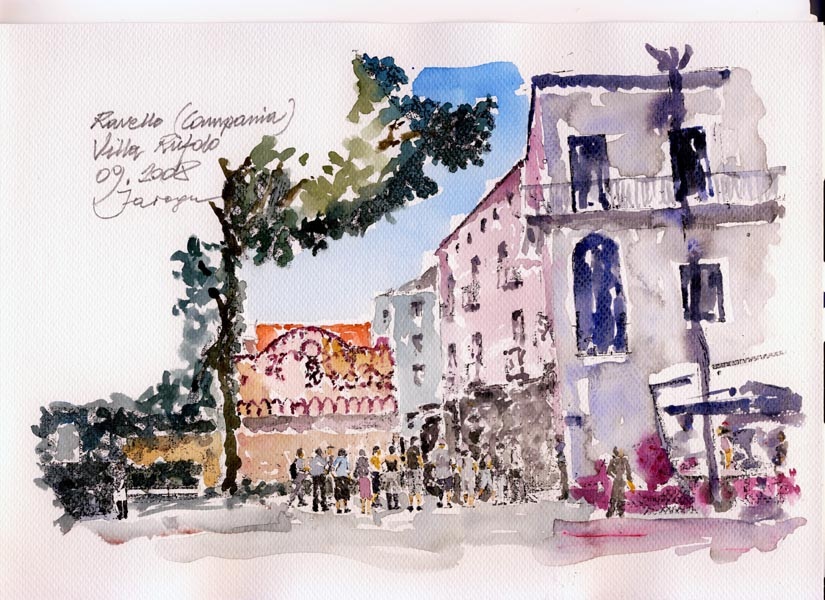 Ravello (Campania)
Villa Rufolo
09. 2008